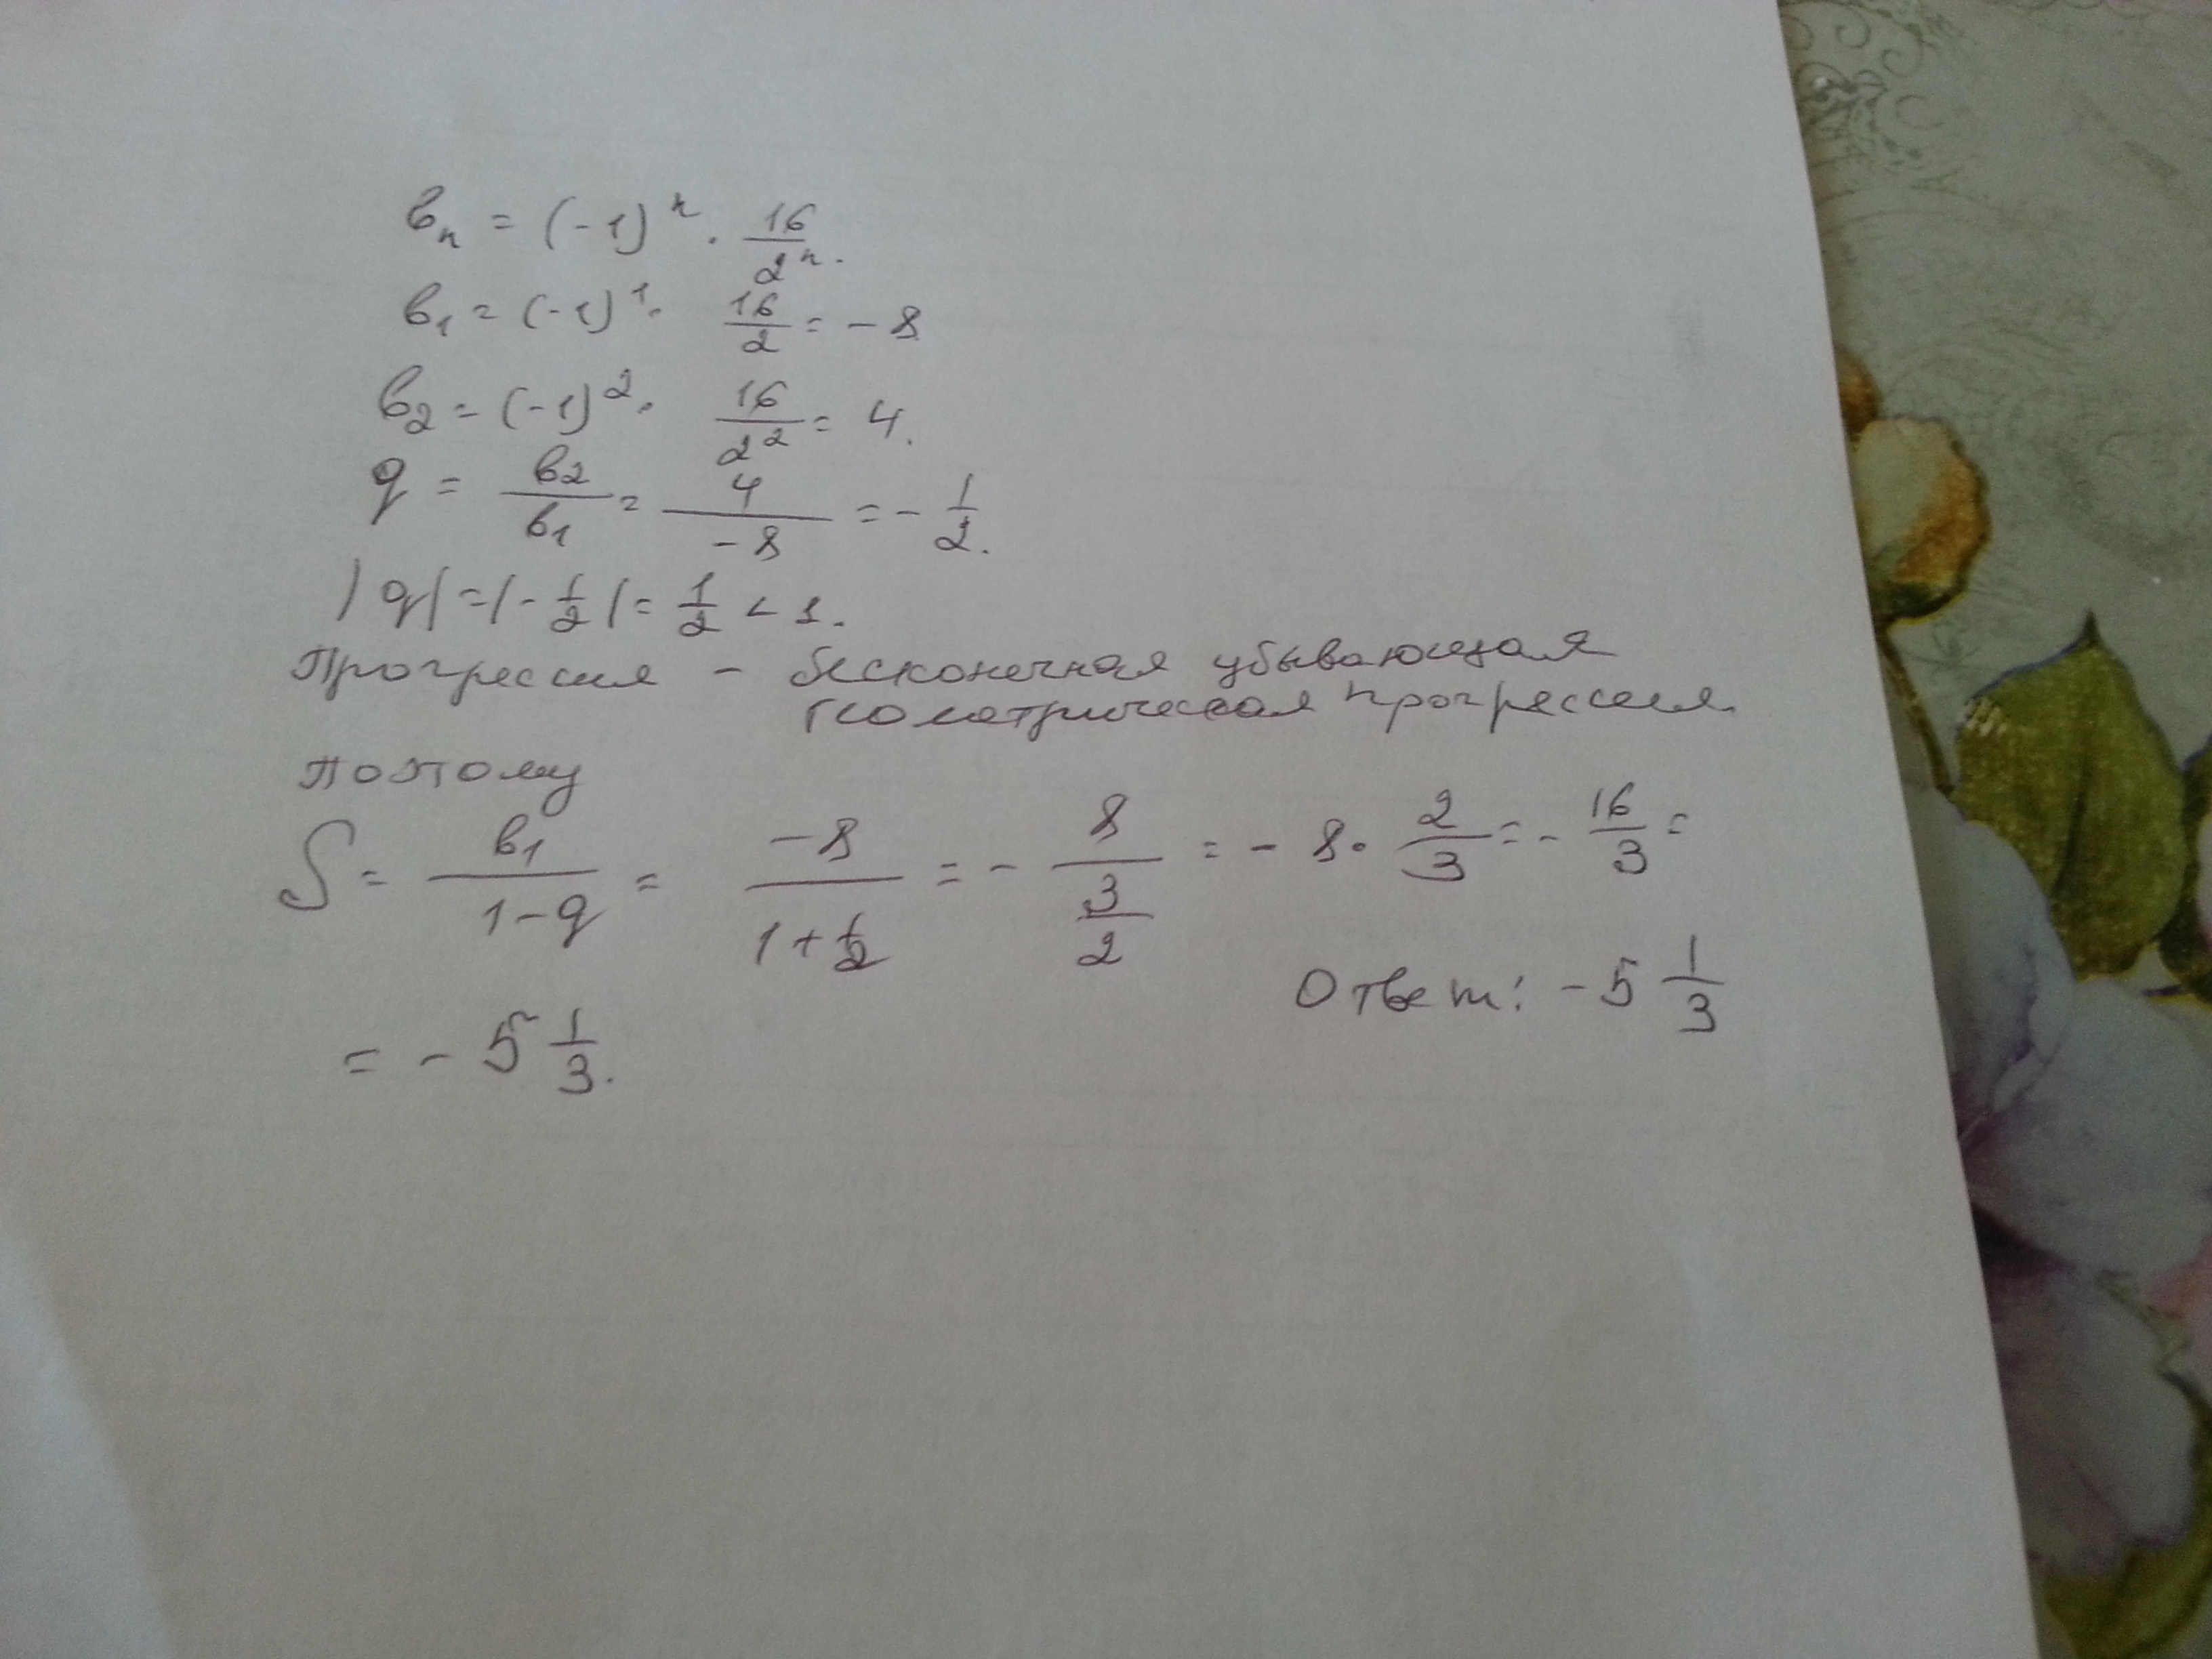 вₙ = (-1)ⁿ · 16/2ⁿ.
в₁ = (-1)¹ · 16/2 = -8
в₂ = (-1)² · 16/2² = 4.
q = в₂/в₁ = 4/-8 = -1/2.
|q| = |-1/2| = 1/2 < 1.
Прогрессия - бесконечная убывающая
геометрическая прогрессия.
Поэтому
S = в₁/(1-q) = -8/(1+1/2) = - 8/(3/2) = -8 · 2/3 = - 16/3 =
= - 5 1/3.
Ответ: -5 1/3